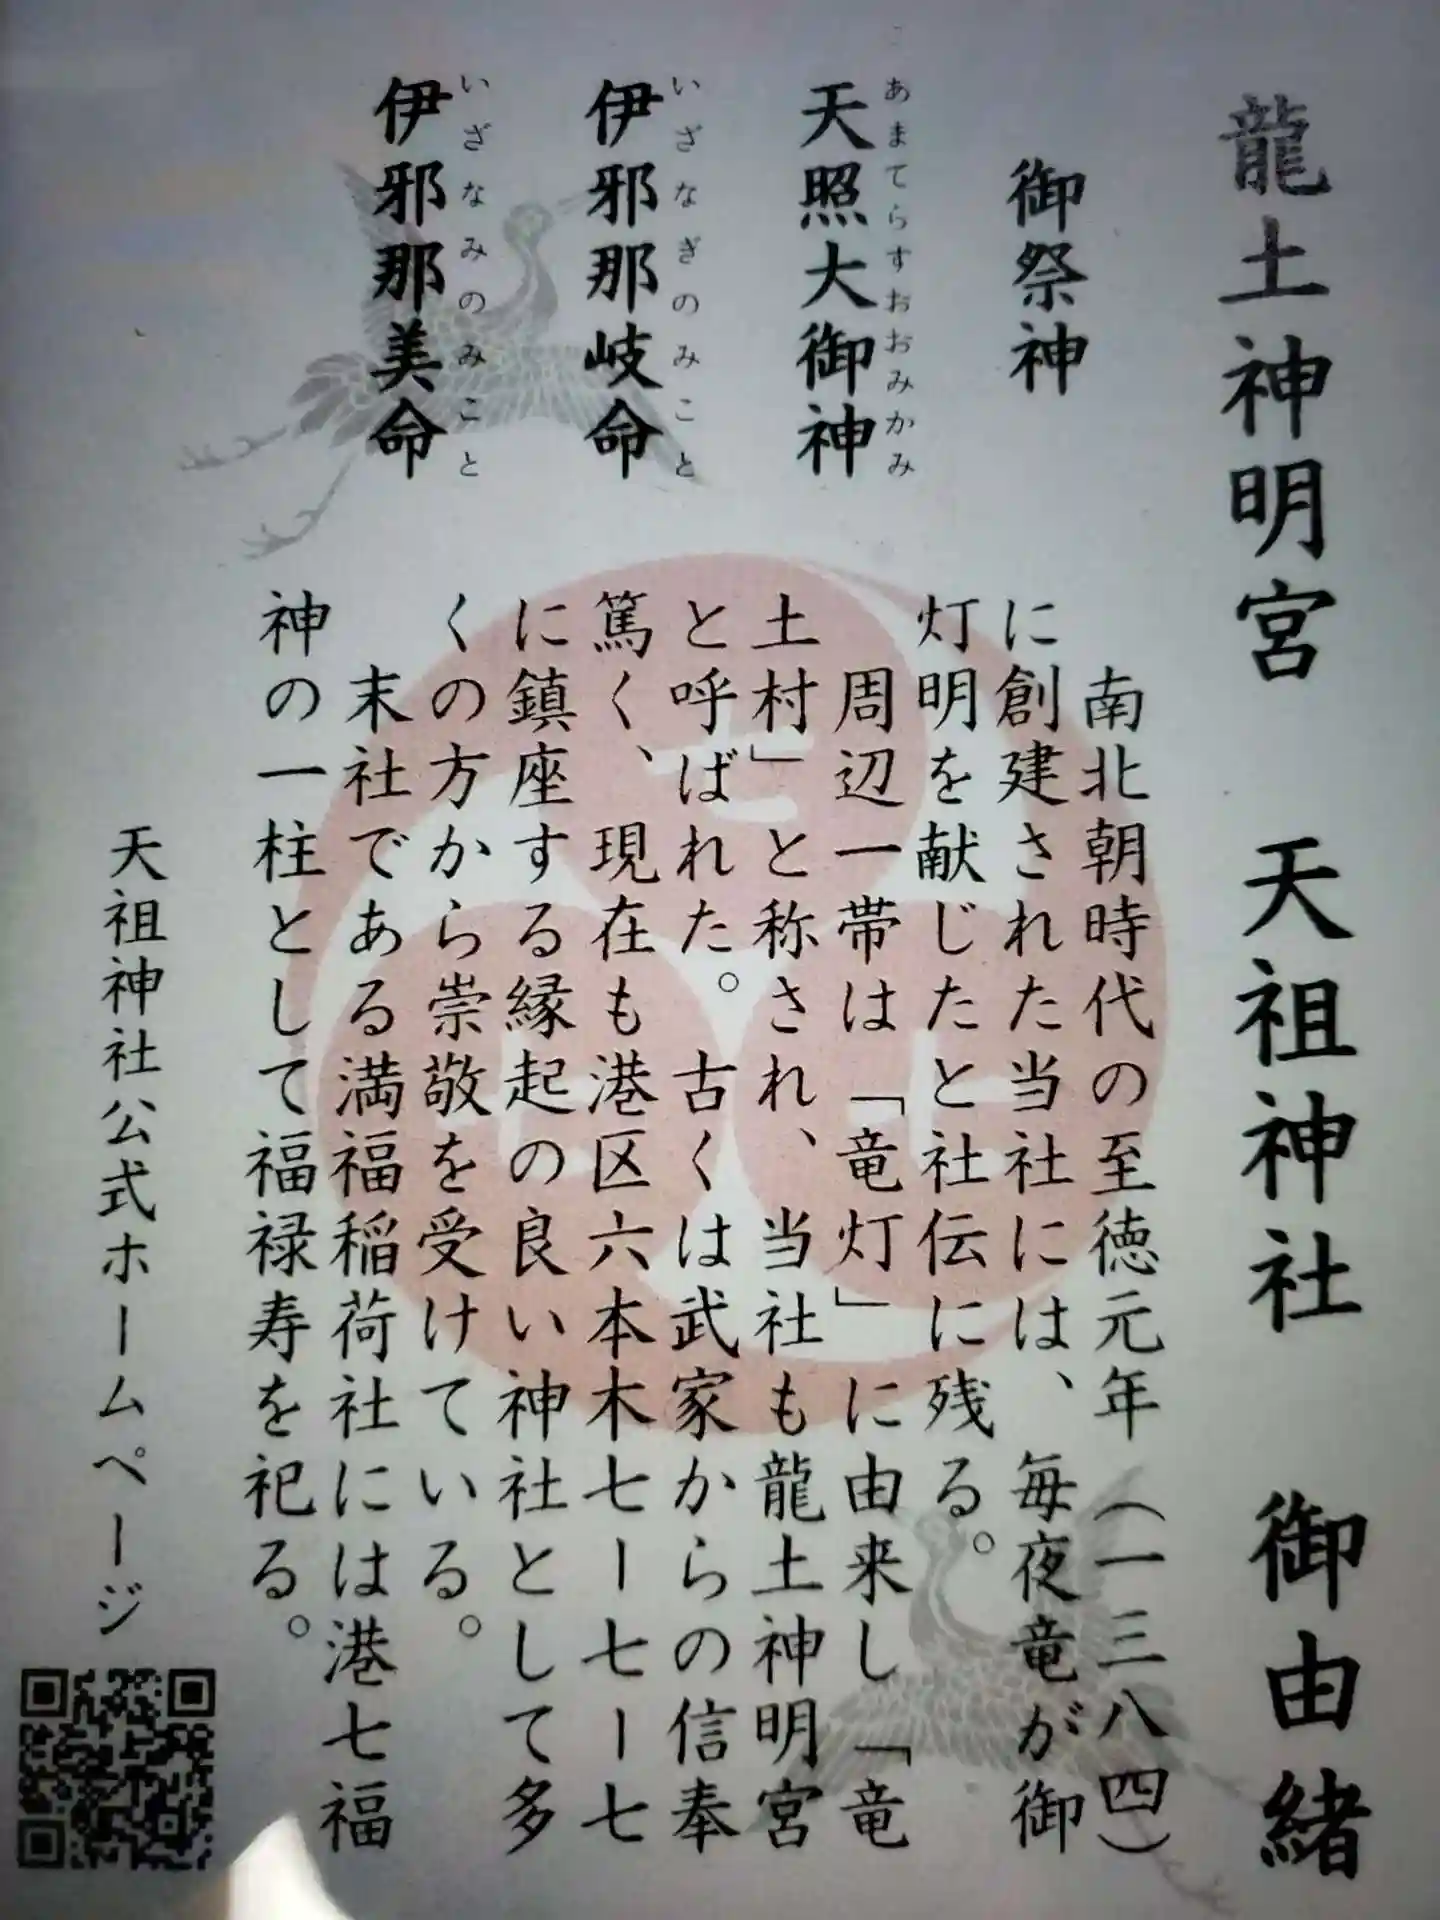 龍土神明宮 天祖神社 御由緒
御祭神
天照大御神
あまてらすおおみかみ
伊邪那岐命
いざなぎのみこと
伊邪那美命
いざなみのみこと
南北朝時代の至徳元年(一三八四)
に創建された当社には、毎夜竜が御
灯明を献じたと社伝に残る。
周辺一帯は「竜灯」に由来し「竜
土村」と称され、当社も龍土神明宮
と呼ばれた。古くは武家からの信奉
篤く、現在も港区六本木七ー七ー七
に鎮座する縁起の良い神社として多
くの方から崇敬を受けている。
末社である満福稲荷社には港七福
神の一柱として福禄寿を祀る。
天祖神社公式ホームページ